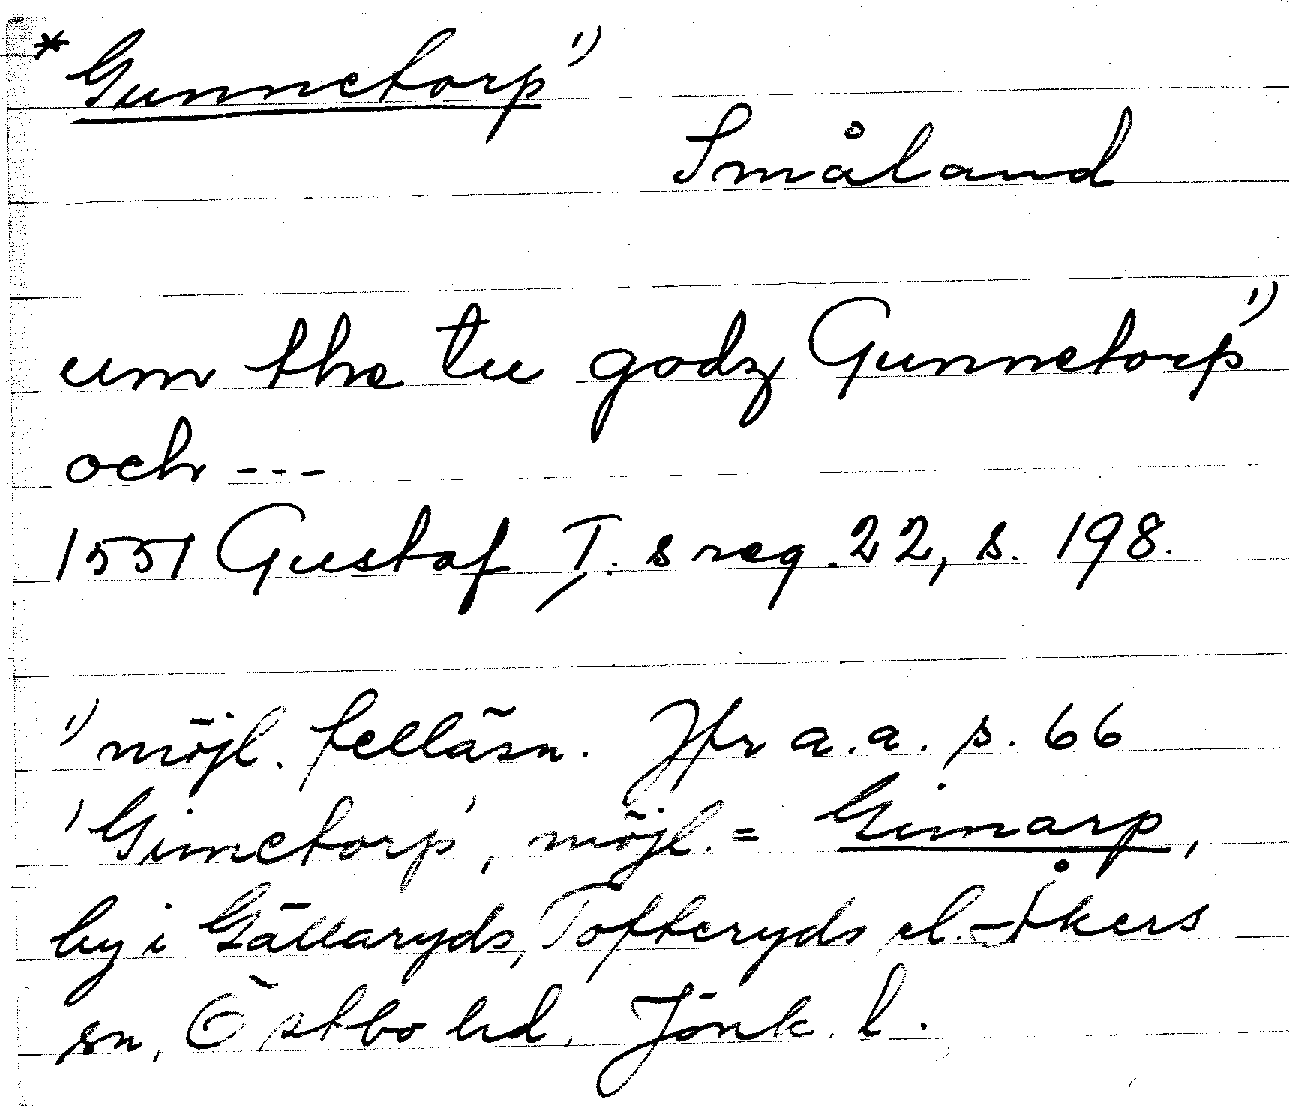 *Gunnetorp¹⁾
Småland
um the tu godz Gunnetorp¹⁾
och ---
1551 Gustaf I.s reg. 22, s. 198.
¹⁾ möjl. felläsn. Jfr a.a. s. 66
'Gimetorp', möjl. = Gimarp,
by i Gällaryds, Tofteryds el. Åkers
sn, Östbo hd, Jönk. l.